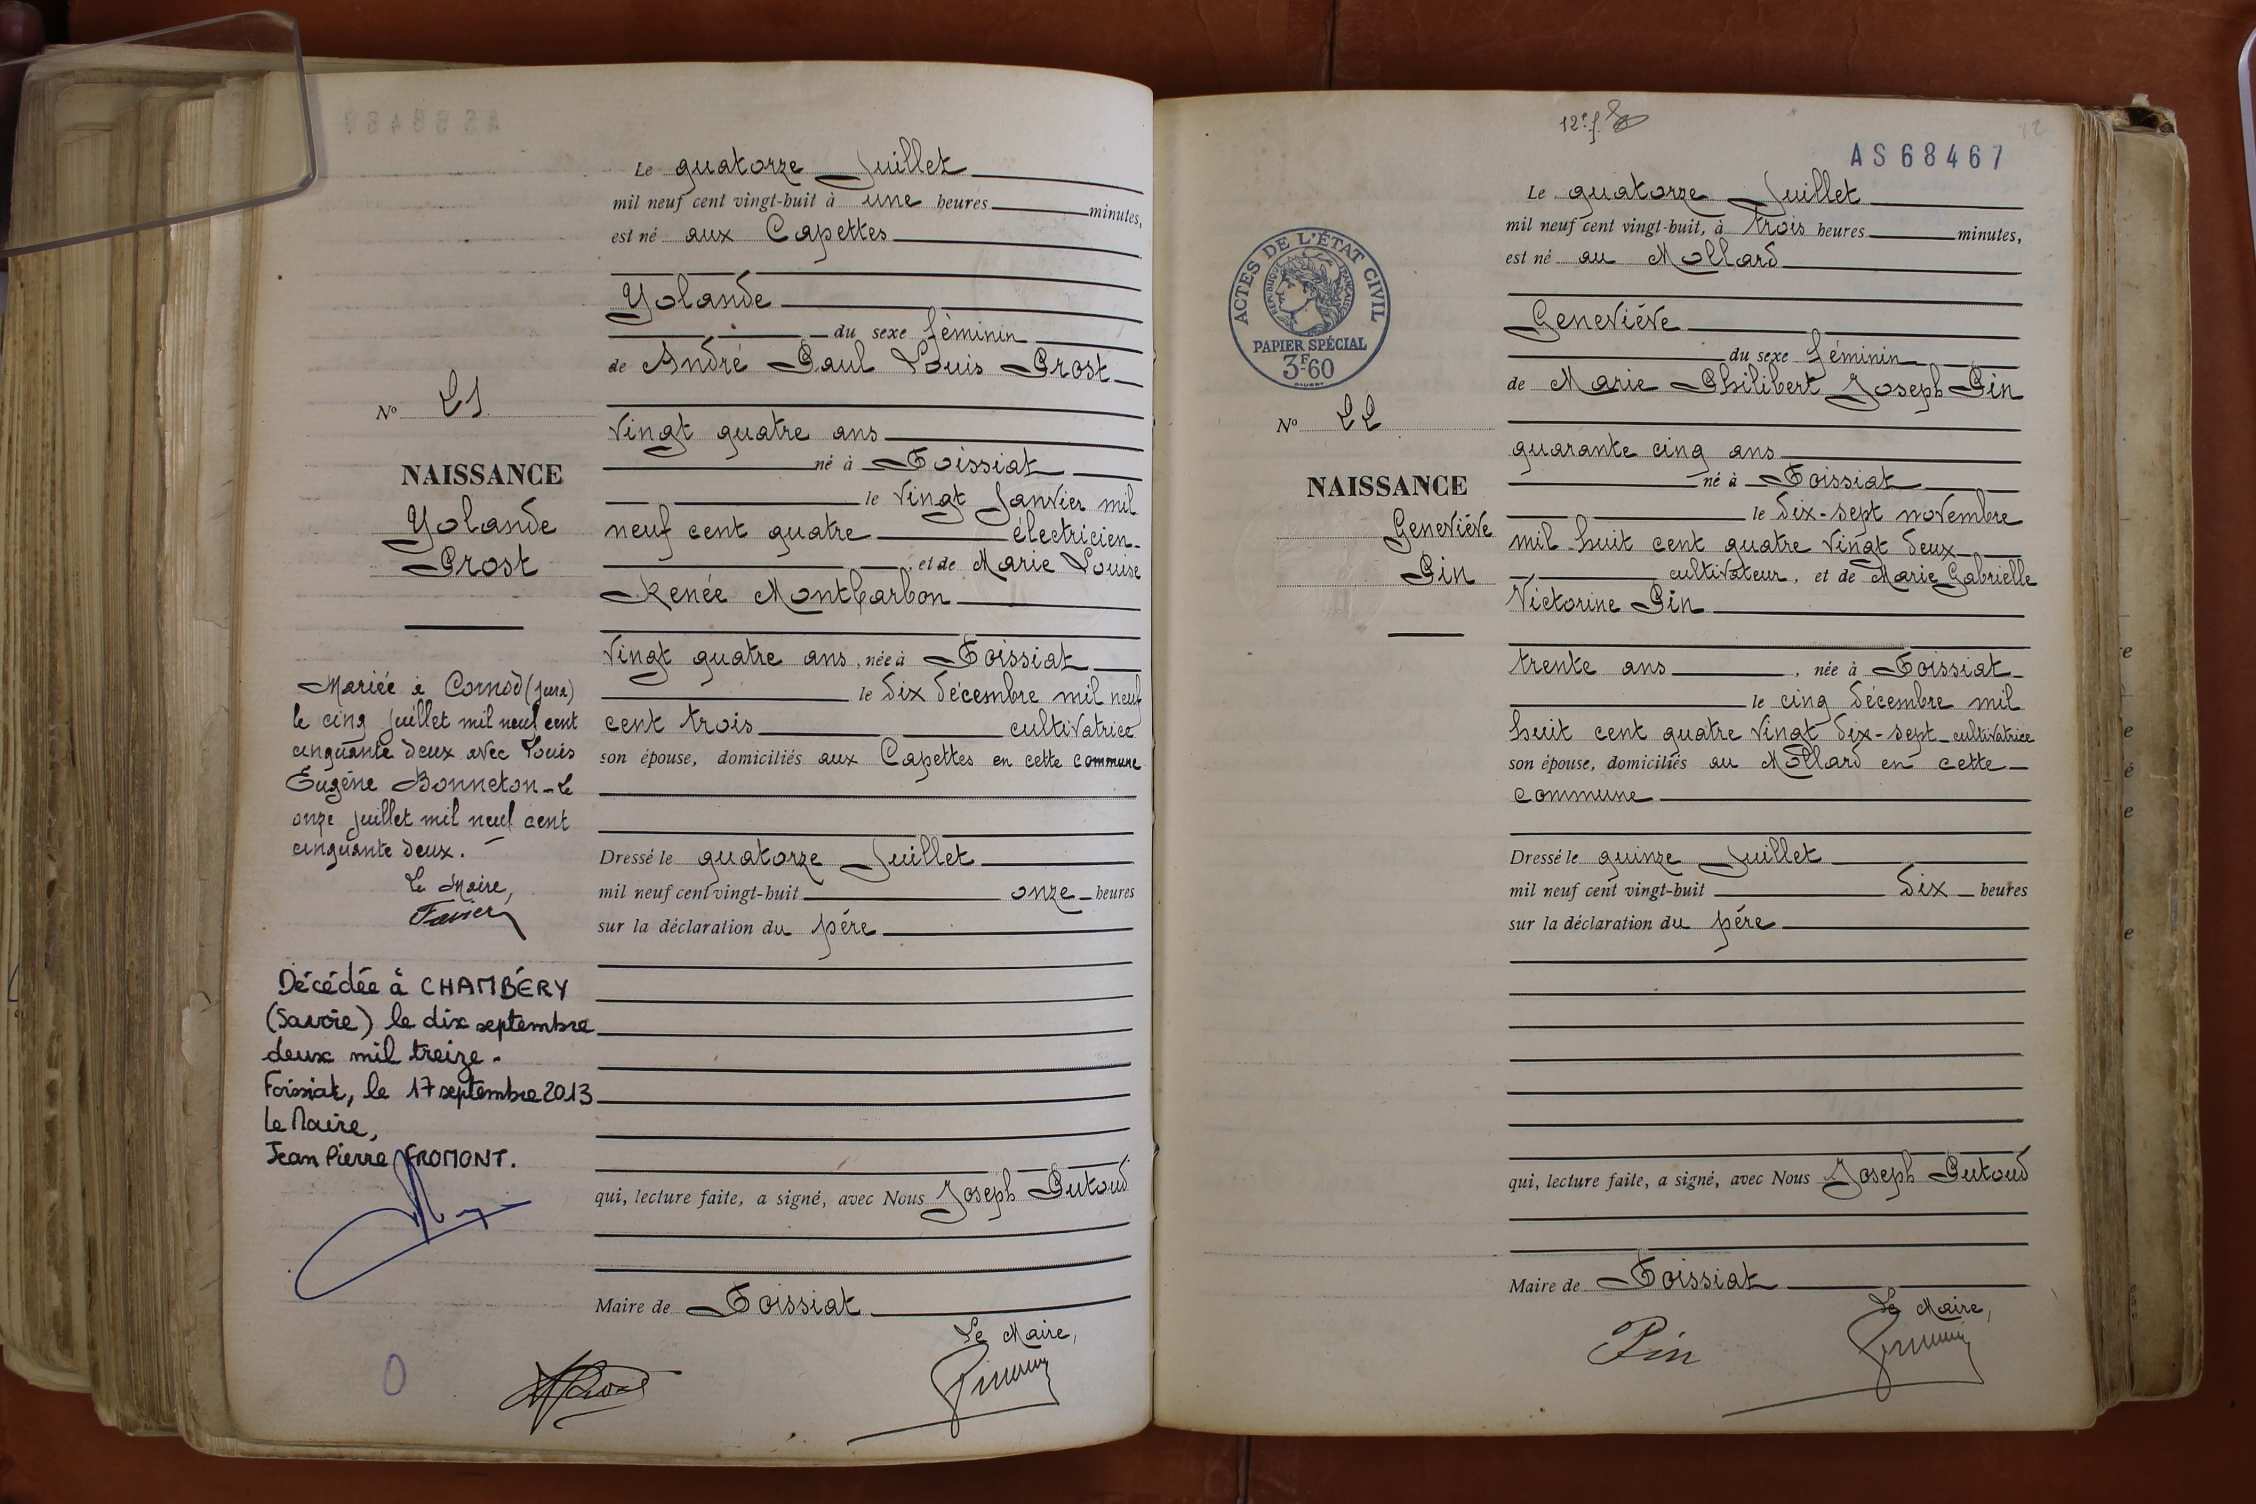 Le quatorze Juillet
mil neuf cent vingt-huit à une heures minutes,
est né aux Capettes
Yolande
du sexe féminin
de André Paul Louis Prost
vingt quatre ans
né à Foissiat
le vingt Janvier mil
neuf cent quatre électricien
, et de Marie Louise
Renée Montbarbon
vingt quatre ans, née à Foissiat
le dix décembre mil neuf
cent trois cultivatrice
son épouse, domiciliés aux Capettes en cette commune
Dressé le quatorze Juillet
mil neuf cent vingt-huit onze heures
sur la déclaration du père
qui, lecture faite, a signé, avec Nous Joseph Putoud
Maire de Foissiat
Le Maire,
No 21
NAISSANCE
Yolande
Prost
Mariée à Cornod (Jura)
le cinq juillet mil neuf cent
cinquante deux avec Louis
Eugène Bonneton - le
onze juillet mil neuf cent
cinquante deux.
Le Maire,
Favier
Décédée à CHAMBÉRY
(Savoie) le dix septembre
deux mil treize.
Foissiat, le 17 septembre 2013
Le Maire,
Jean Pierre FROMONT.
12e f.
AS68467
12
Le quatorze Juillet
mil neuf cent vingt-huit, à trois heures minutes,
est né au Mollard
Geneviève
du sexe féminin
de Marie Philibert Joseph Pin
quarante cinq ans
né à Foissiat
le dix-sept novembre
mil huit cent quatre vingt deux
cultivateur, et de Marie Gabrielle
Victorine Pin
trente ans, née à Foissiat
le cinq décembre mil
huit cent quatre vingt dix-sept cultivatrice
son épouse, domiciliés au Mollard en cette
commune
Dressé le quinze Juillet
mil neuf cent vingt-huit dix heures
sur la déclaration du père
qui, lecture faite, a signé, avec Nous Joseph Putoud
Maire de Foissiat
Le Maire,
Pin
ACTES DE L'ÉTAT CIVIL
RÉPUBLIQUE FRANÇAISE
PAPIER SPÉCIAL
3F60
No 22
NAISSANCE
Geneviève
Pin